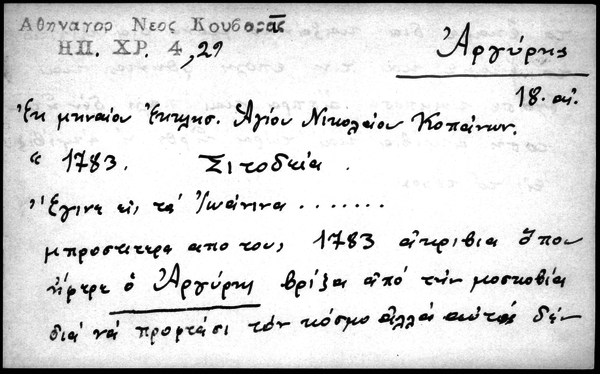 Ἀθηναγορ Νεος Κουβαρᾶς
ΗΠ. ΧΡ. 4, 29
Ἀργύρης
18. αἰ.
Ἐκ μηναίου Ἐκκλησ. Ἁγίου Νικολάου Κοπάνων.
" 1783. Σιτοδεία.
"Ἔγινε εἰς τά Ἰωάνινα .......
μπροστιτερα απο τους 1783 ἀκριβια ὁπου
ἤφερε ὁ Ἀργύρης βρίζα ἀπό τήν μοσκοβία
διά νά προφτάσι τόν κόσμο ἀλλά αὐτός δέν